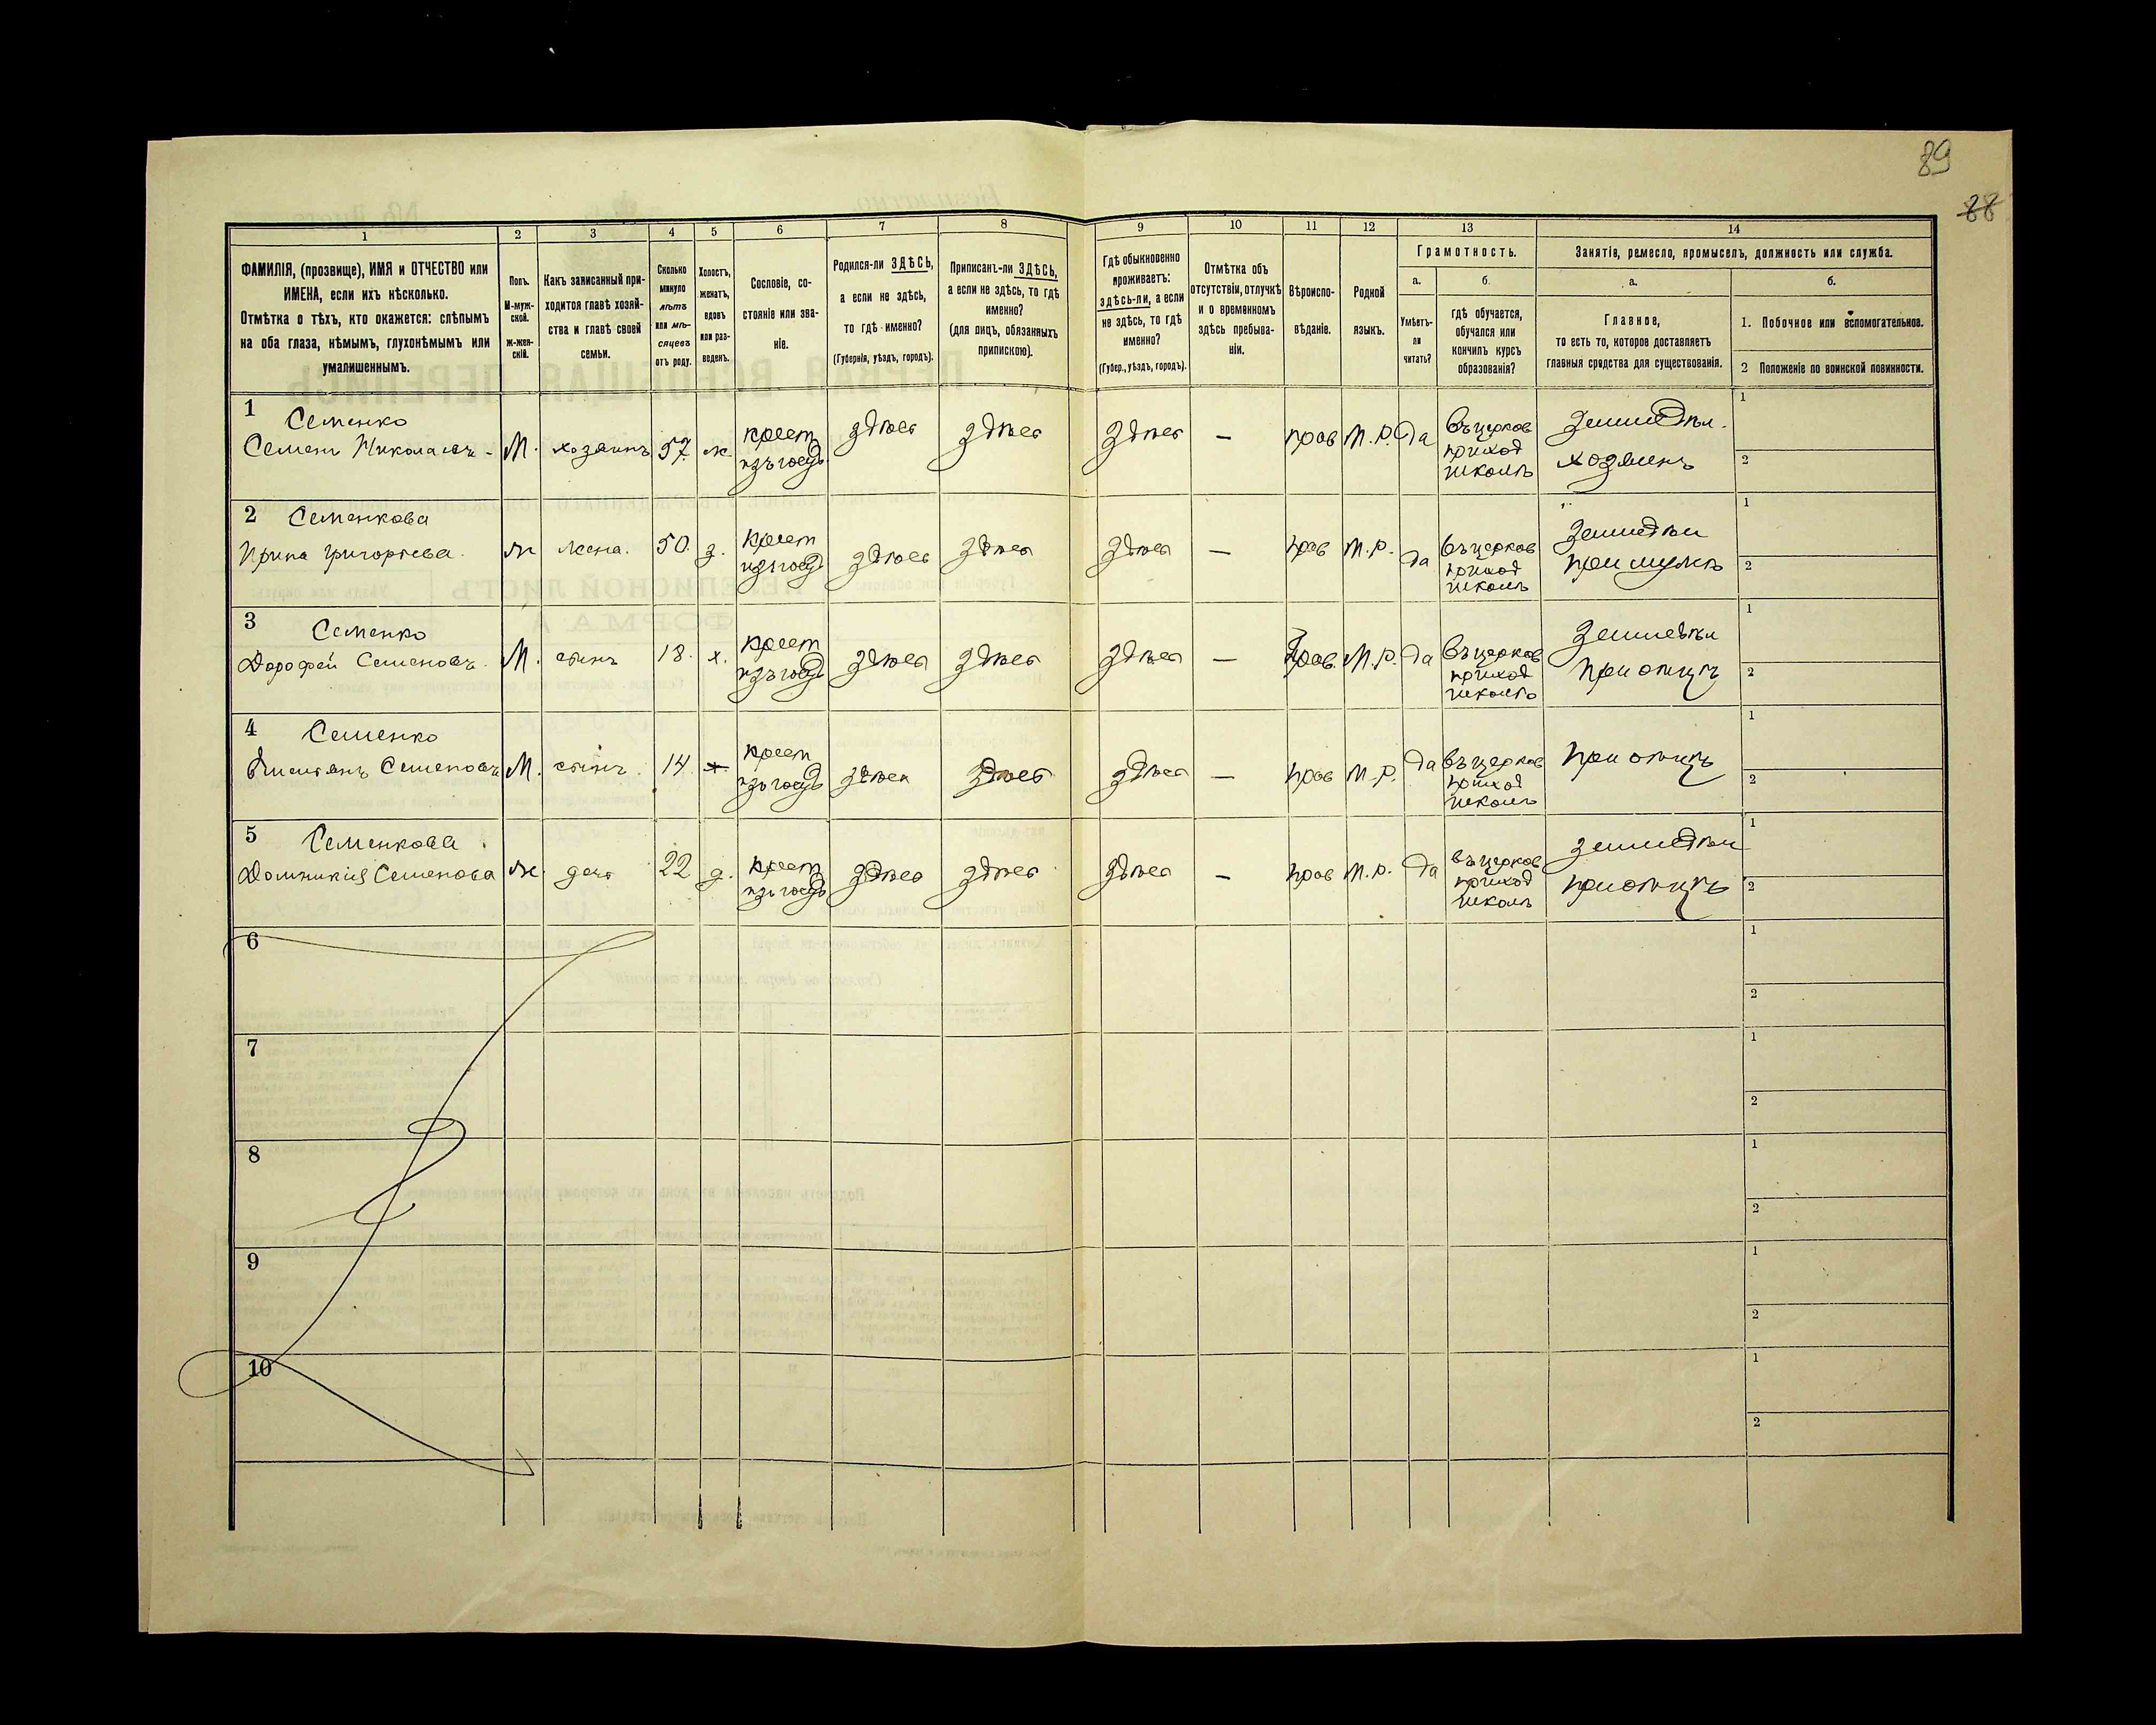 89
88
1 2 3 4 5 6 7 8 9 10 11 12 13 14
ФАМИЛІЯ, (прозвище), ИМЯ и ОТЧЕСТВО или
ИМЕНА, если ихъ нѣсколько.
Отмѣтка о тѣхъ, кто окажется: слѣпымъ
на оба глаза, нѣмымъ, глухонѣмымъ или
умалишеннымъ.
Полъ.
М-муж-
ской.
Ж-жен-
скій.
Какъ записанный при-
ходится главѣ хозяй-
ства и главѣ своей
семьи.
Сколько
минуло
лѣтъ
или мѣ-
сяцевъ
отъ роду.
Холостъ,
женатъ,
вдовъ
или раз-
веденъ.
Сословіе, со-
стояніе или зва-
ніе.
Родился-ли ЗДѢСЬ,
а если не здѣсь,
то гдѣ именно?
(Губернія, уѣздъ, городъ).
Приписанъ-ли ЗДѢСЬ,
а если не здѣсь, то гдѣ
именно?
(для лицъ, обязанныхъ
припискою).
Гдѣ обыкновенно
проживаетъ:
здѣсь-ли, а если
не здѣсь, то гдѣ
именно?
(Губер., уѣздъ, городъ).
Отмѣтка объ
отсутствіи, отлучкѣ
и о временномъ
здѣсь пребыва-
ніи.
Вѣроиспо-
вѣданіе.
Родной
языкъ.
Грамотность.
а.
Умѣетъ-
ли
читать?
б.
гдѣ обучается,
обучался или
кончилъ курсъ
образованія?
Занятія, ремесло, промыселъ, должность или служба.
а.
Главное,
то есть то, которое доставляетъ
главныя средства для существованія.
б.
1. Побочное или вспомогательное.
2 Положеніе по воинской повинности.
1 Семенко
Семенъ Николаевъ - М. хозяинъ 57. ж. крест изъ госуд здѣсь здѣсь здѣсь — прав М.р. Да въ церков
приход
школѣ
Земледѣл.
хозяинъ
1
2
2 Семенкова
Ирина Григорьева. ж жена. 50. з. крест изъ госуд здѣсь здѣсь здѣсь — прав М.р. Да въ церков
приход
школѣ
Земледѣл
при мужѣ
1
2
3 Семенко
Дорофей Семеновъ. М. сынъ 18. х. крест изъ госуд здѣсь здѣсь здѣсь — Прав. М.р. Да въ церков
приход
школѣ
Земледѣл
при отцѣ
1
2
4 Семенко
Семеновъ М. сынъ. 14. х. крест изъ госуд здѣсь здѣсь здѣсь — прав М.р. Да въ церков
приход
школѣ
при отцѣ
1
2
5 Семенкова
Домникія Семенова ж. дочь 22 д. крест изъ госуд здѣсь здѣсь здѣсь — прав М.р. Да въ церков
приход
школѣ
земледѣл
при отцѣ
1
2
6
1
2
7
1
2
8
1
2
9
1
2
10
1
2